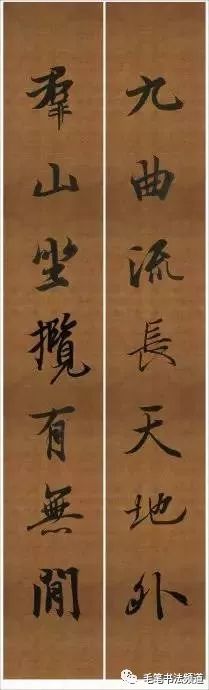 九曲流長天地外
羣山坐攬有無間
毛笔书法频道